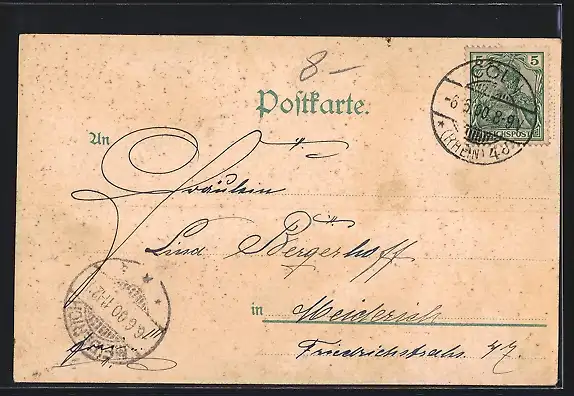 8-
5 5
REICHSPOST
CÖLN
-6.6.00.8-9
*(RHEIN) 4*
Postkarte.
An
Fräulein
Lina Bergerhoff
in Meiderich
6.6.00.11-12
Friedrichstraße 47.